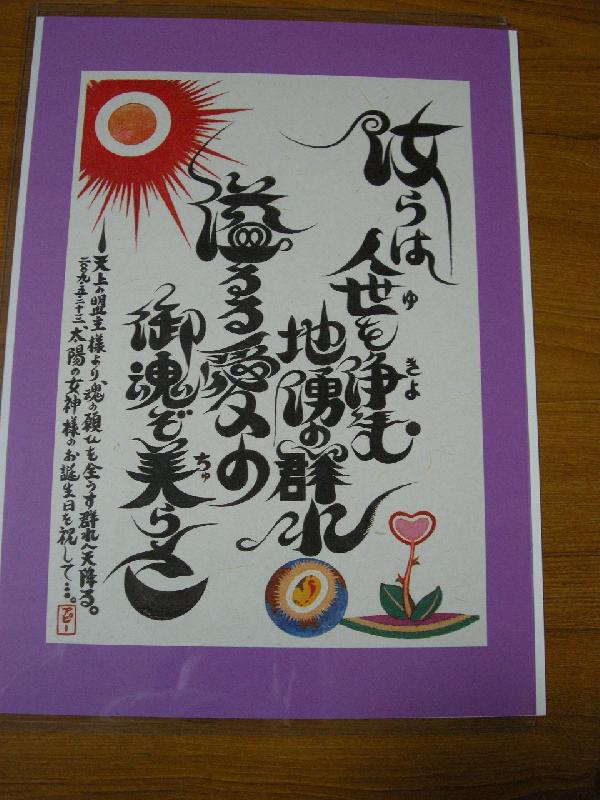 汝らは
人世を浄む
ゆ
きよ
地湧の群れ
溢るる愛の
御魂ぞ美らし
ちゅ
天上の盟主様より魂の願ひを全うす群れへ天降る。
二〇〇九・五・二十三、太陽の女神様のお誕生日を祝して…。